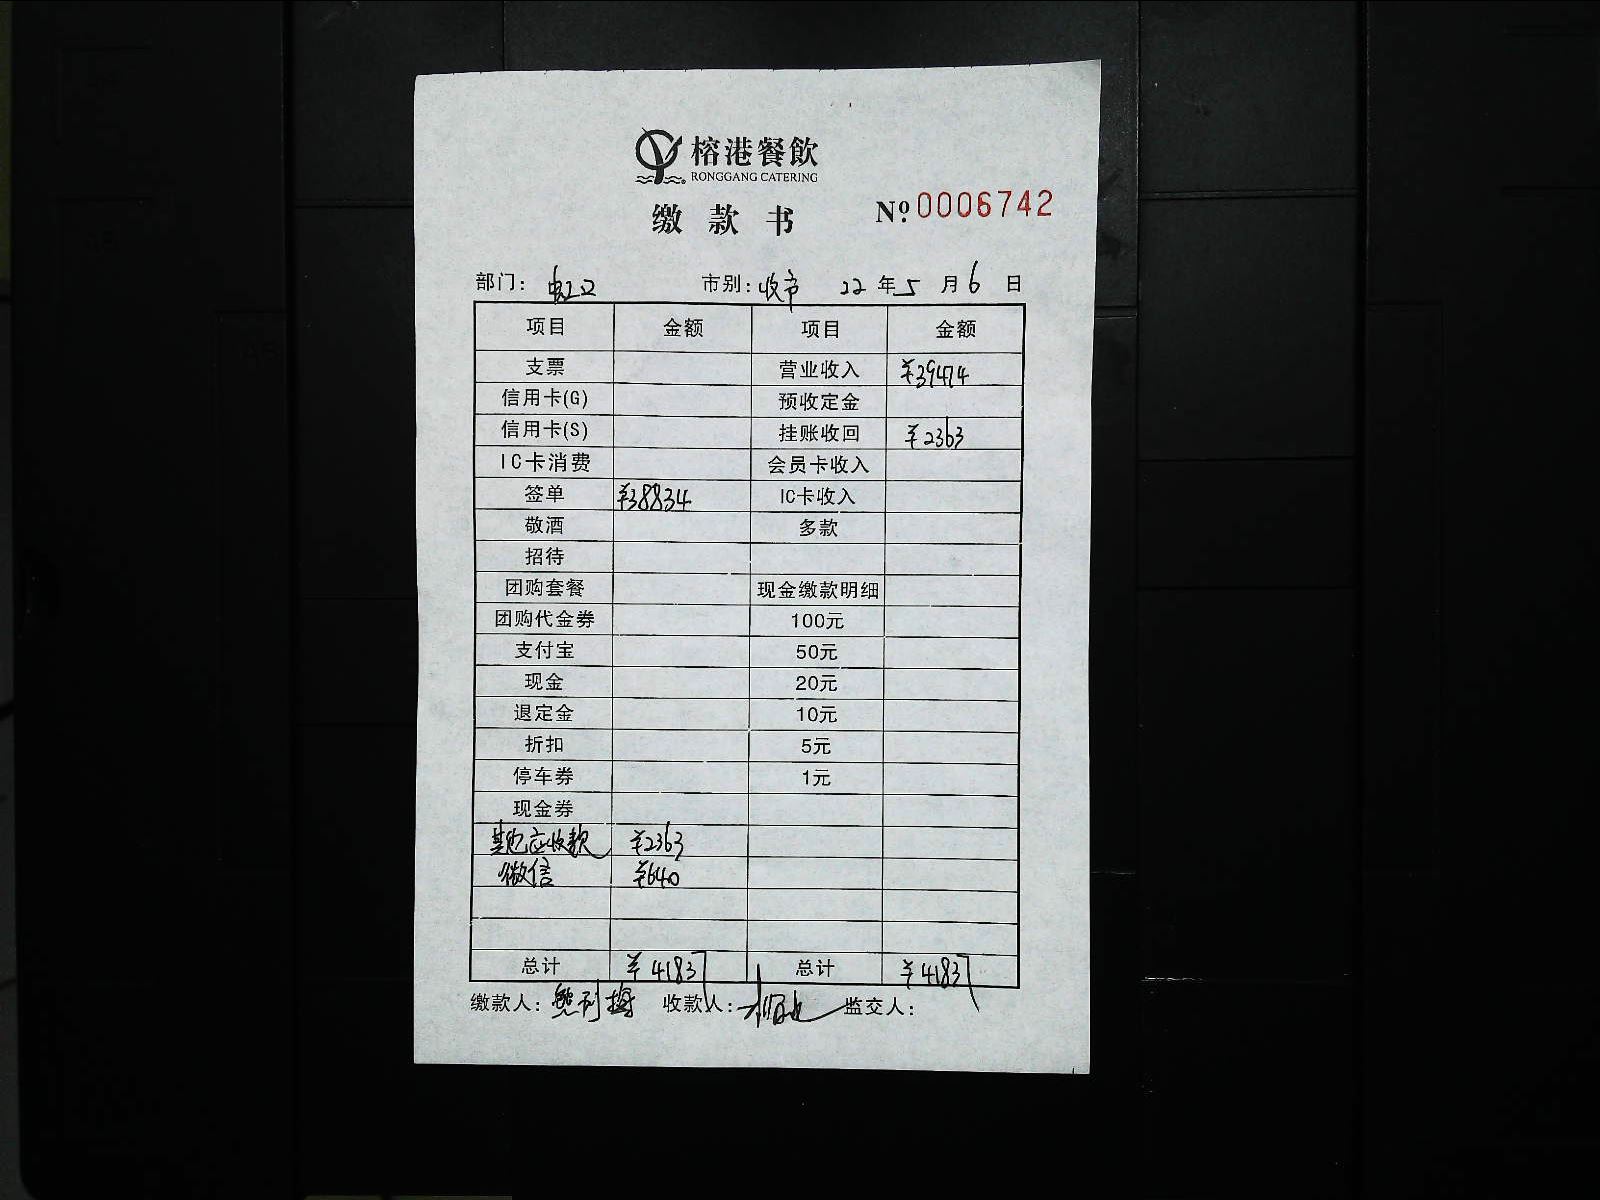 榕港餐飲
RONGGANG CATERING
缴款书 № 0006742
部门: 虹口 市别: 收市 22 年 5 月 6 日
项目 金额 项目 金额
支票 营业收入 ¥39474
信用卡(G) 预收定金
信用卡(S) 挂账收回 ¥2363
IC卡消费 会员卡收入
签单 ¥38834 IC卡收入
敬酒 多款
招待
团购套餐 现金缴款明细
团购代金券 100元
支付宝 50元
现金 20元
退定金 10元
折扣 5元
停车券 1元
现金券
其他应收款 ¥2363
微信 ¥640
总计 ¥41837 总计 ¥41837
缴款人: 收款人: 监交人: